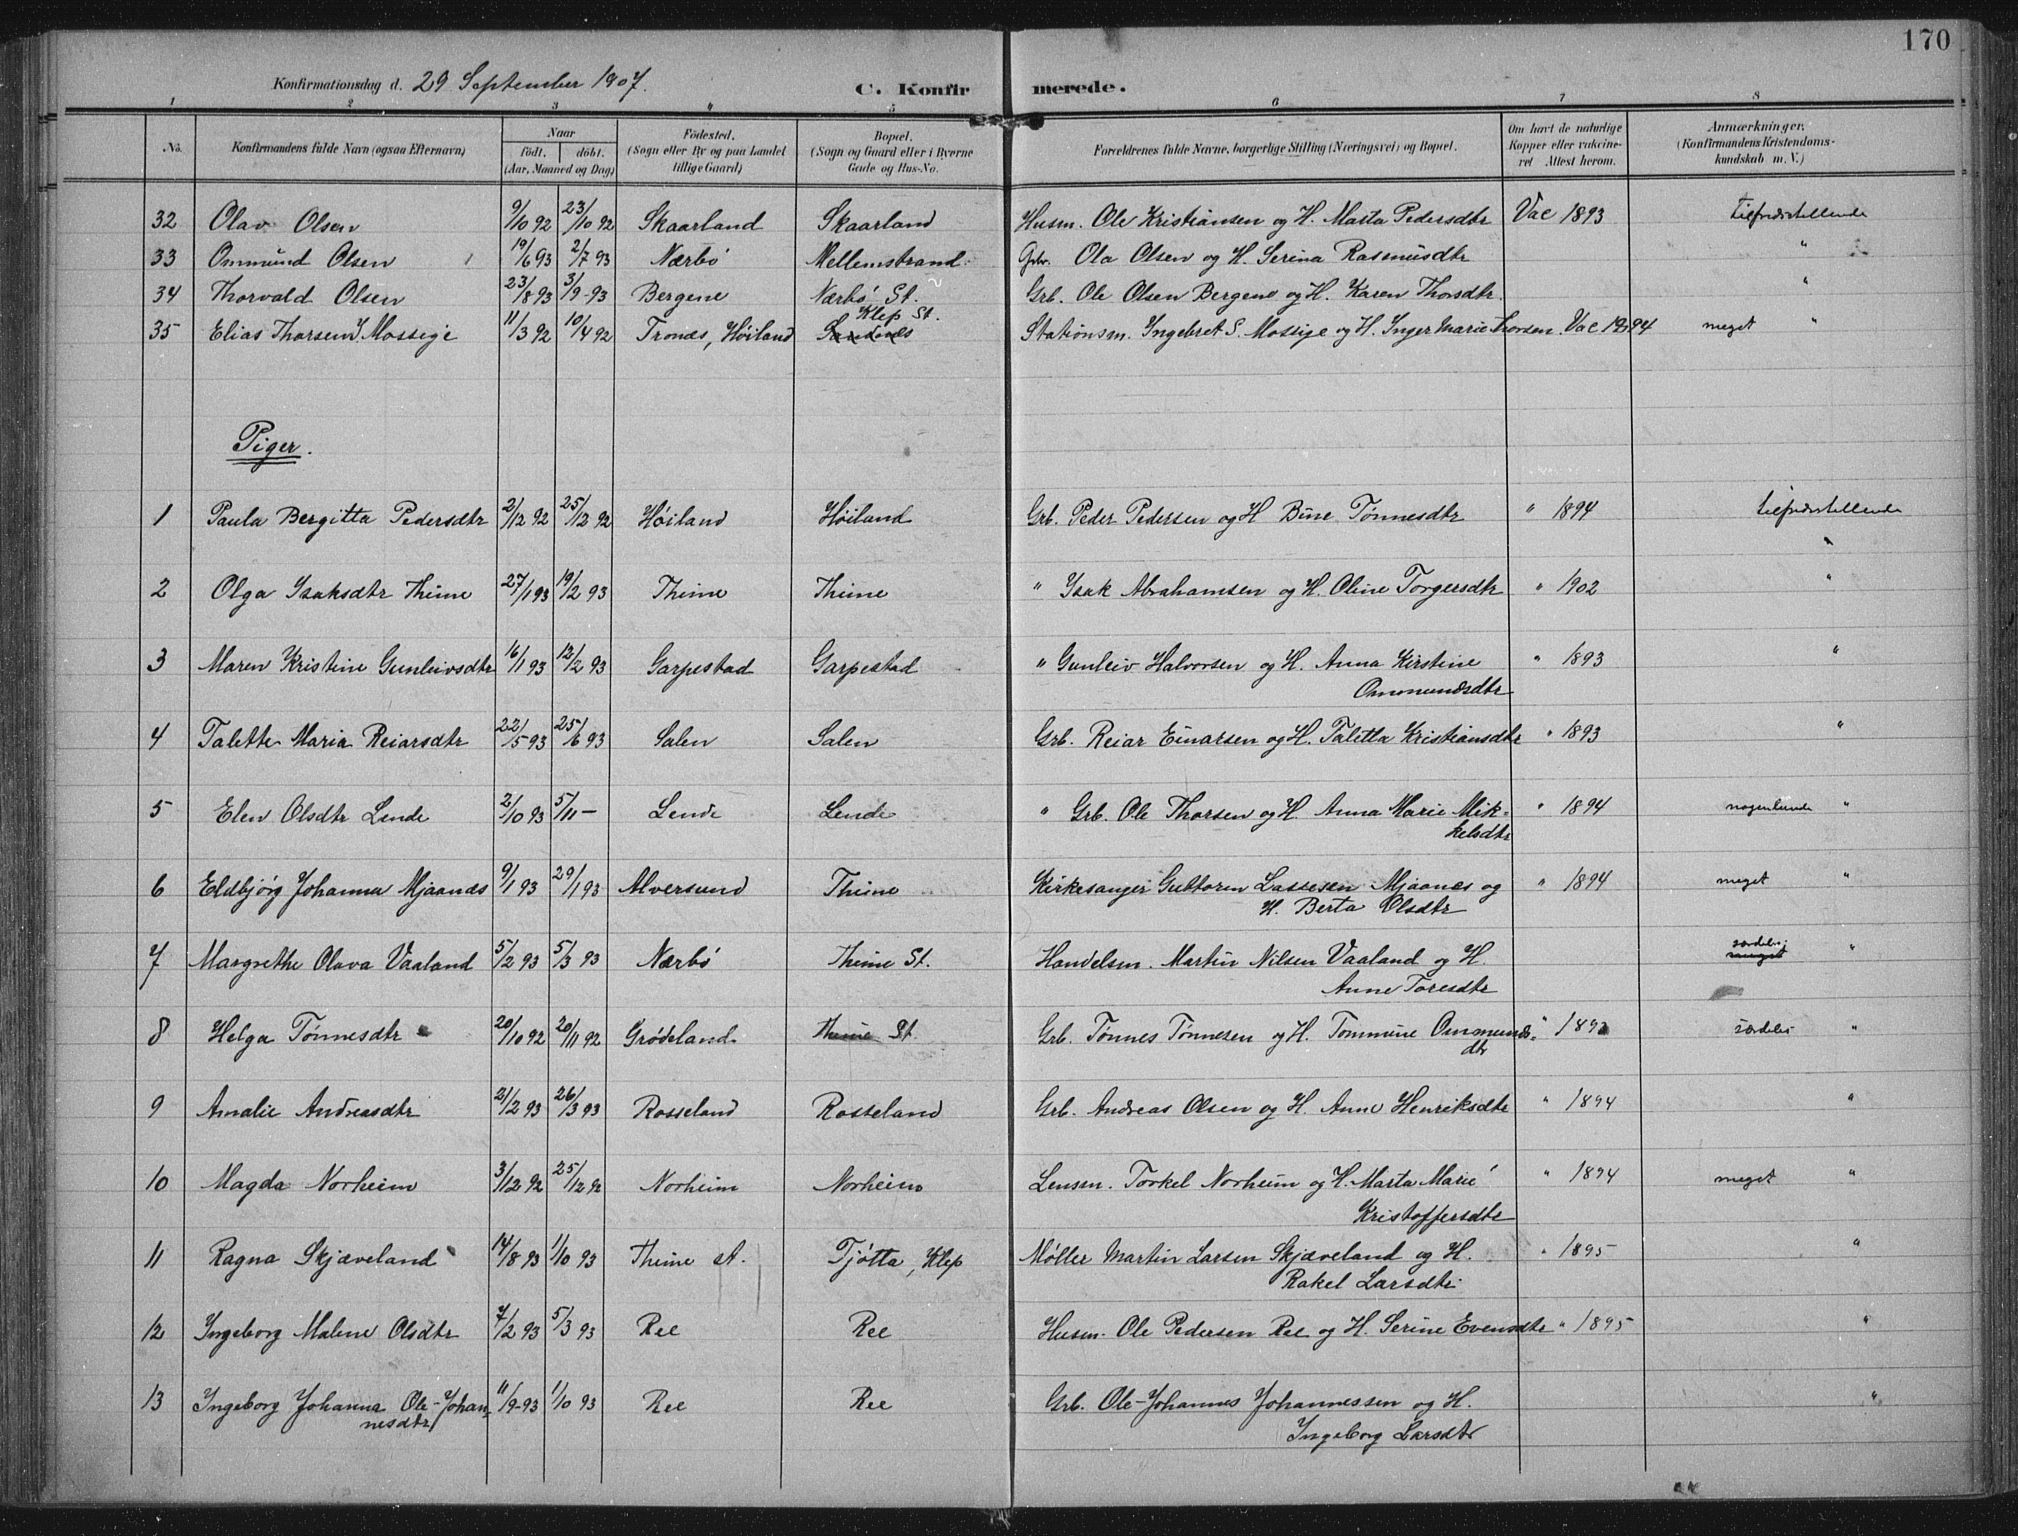 170
Konfirmationsdag d. 29 September 1907. C. Konfirmerede.
1 2 3 4 5 6 7 8
No. Konfirmandens fulde Navn (ogsaa Efternavn) Naar födt. döbt. (Aar, Maaned og Dag) Födested. (Sogn eller By og paa Landet tillige Gaard) Bopæl. (Sogn og Gaard eller i Byerne Gade og Hus-No. Forældrenes fulde Navne, borgerlige Stilling (Næringsvei) og Bopæl. Om havt de naturlige Kopper eller vakcineret Attest herom. Anmærkninger. (Konfirmandens Kristendomskundskab m. V.)
32 Olav Olsen 9/10 92 23/10 92 Skaarland Skaarland Husm. Ole Kristiansen og H. Marta Pedersdtr Vac 1893 tilfredsstillende
33 Ommund Olsen 19/6 93 2/7 93 Nærbö Mellemstrand Gbr. Ola Olsen og H. Serina Rasmusdtr "
34 Thorvald Olsen 23/8 93 3/9-93 Bergene Nærbö St. Grb. Ole Olsen Bergene og H. Karen Thorsdtr. "
Klep St.
35 Elias Thorsen I. Mossige 11/3 92 10/4 92 Tronæs, Höiland Sandnes Stationsm. Ingebret S. Mossige og H. Inger Marie Thorsen Vac 1894 meget "
Piger.
1 Paula Bergitta Pedersdtr 2/12 92 25/12 92 Höiland Höiland Grb. Peder Pedersen og H Bine Tönnesdtr " 1894 tilfredsstillende
"
2 Olga Isaksdtr Thime 27/1 93 19/2 93 Thime Thime " Isak Abrahamsen og H. Oline Torgersdtr " 1902 "
3 Maren Kristine Gunleivsdtr 16/1 93 12/2 93 Garpestad Garpestad " Gunleiv Halvorsen og H. Anna Kirstine " 1893 "
Ommundsdtr
4 Talette Maria Reiarsdtr 22/5 93 25/6 93 Salen Salen Grb. Reiar Einarsen og H. Taletta Kristiansdtr " 1893 "
5 Elen Olsdtr Lende 2/10 93 5/11 - Lende Lende " Grb. Ole Thorsen og H Anna Marie Mik- " 1894 nogenlunde "
kelsdtr
6 Eldbjörg Johanna Mjaanes 9/1 93 29/1 93 Alversund Thime Kirkesanger Guttorm Lassesen Mjaanes og " 1894 meget "
H. Berta Olsdtr
7 Margrethe Olava Vaaland 5/2 93 5/3 93 Nærbö Thime St. Handelsm. Martin Nilsen Vaaland og H. særdeles meget "
Anne Toresdtr
8 Helga Tönnesdtr 20/10 92 20/11 92 Grödeland Thime St. Grb. Tönnes Tönnesen og H. Tommine Ommunds- " særdeles "
dtr
9 Amalie Andreasdtr 21/2 93 26/3 93 Rosseland Rosseland Grb. Andreas Olsen og H. Anne Henriksdtr " 1894 "
10 Magda Norheim 3/12 92 25/12 92 Norheim Norheim Lensm. Torkel Norheim og H. Marta Marie " 1894 meget "
Kristoffersdtr
11 Ragna Skjæveland 14/8 93 1/10 93 Thime st. Tjötta, Klep Möller Martin Larsen Skjæveland og H. " 1895 "
Rakel Larsdtr.
12 Ingeborg Malene Olsdtr 7/2 93 5/3 93 Ree Ree Husm. Ole Pedersen Ree og H. Serine Evensdtr " 1895 "
13 Ingeborg Johanna Ole-Johan- 11/9-93 1/10 93 Ree Ree Grb. Ole-Johannes Johannessen og H. "
nesdtr Ingeborg Larsdtr